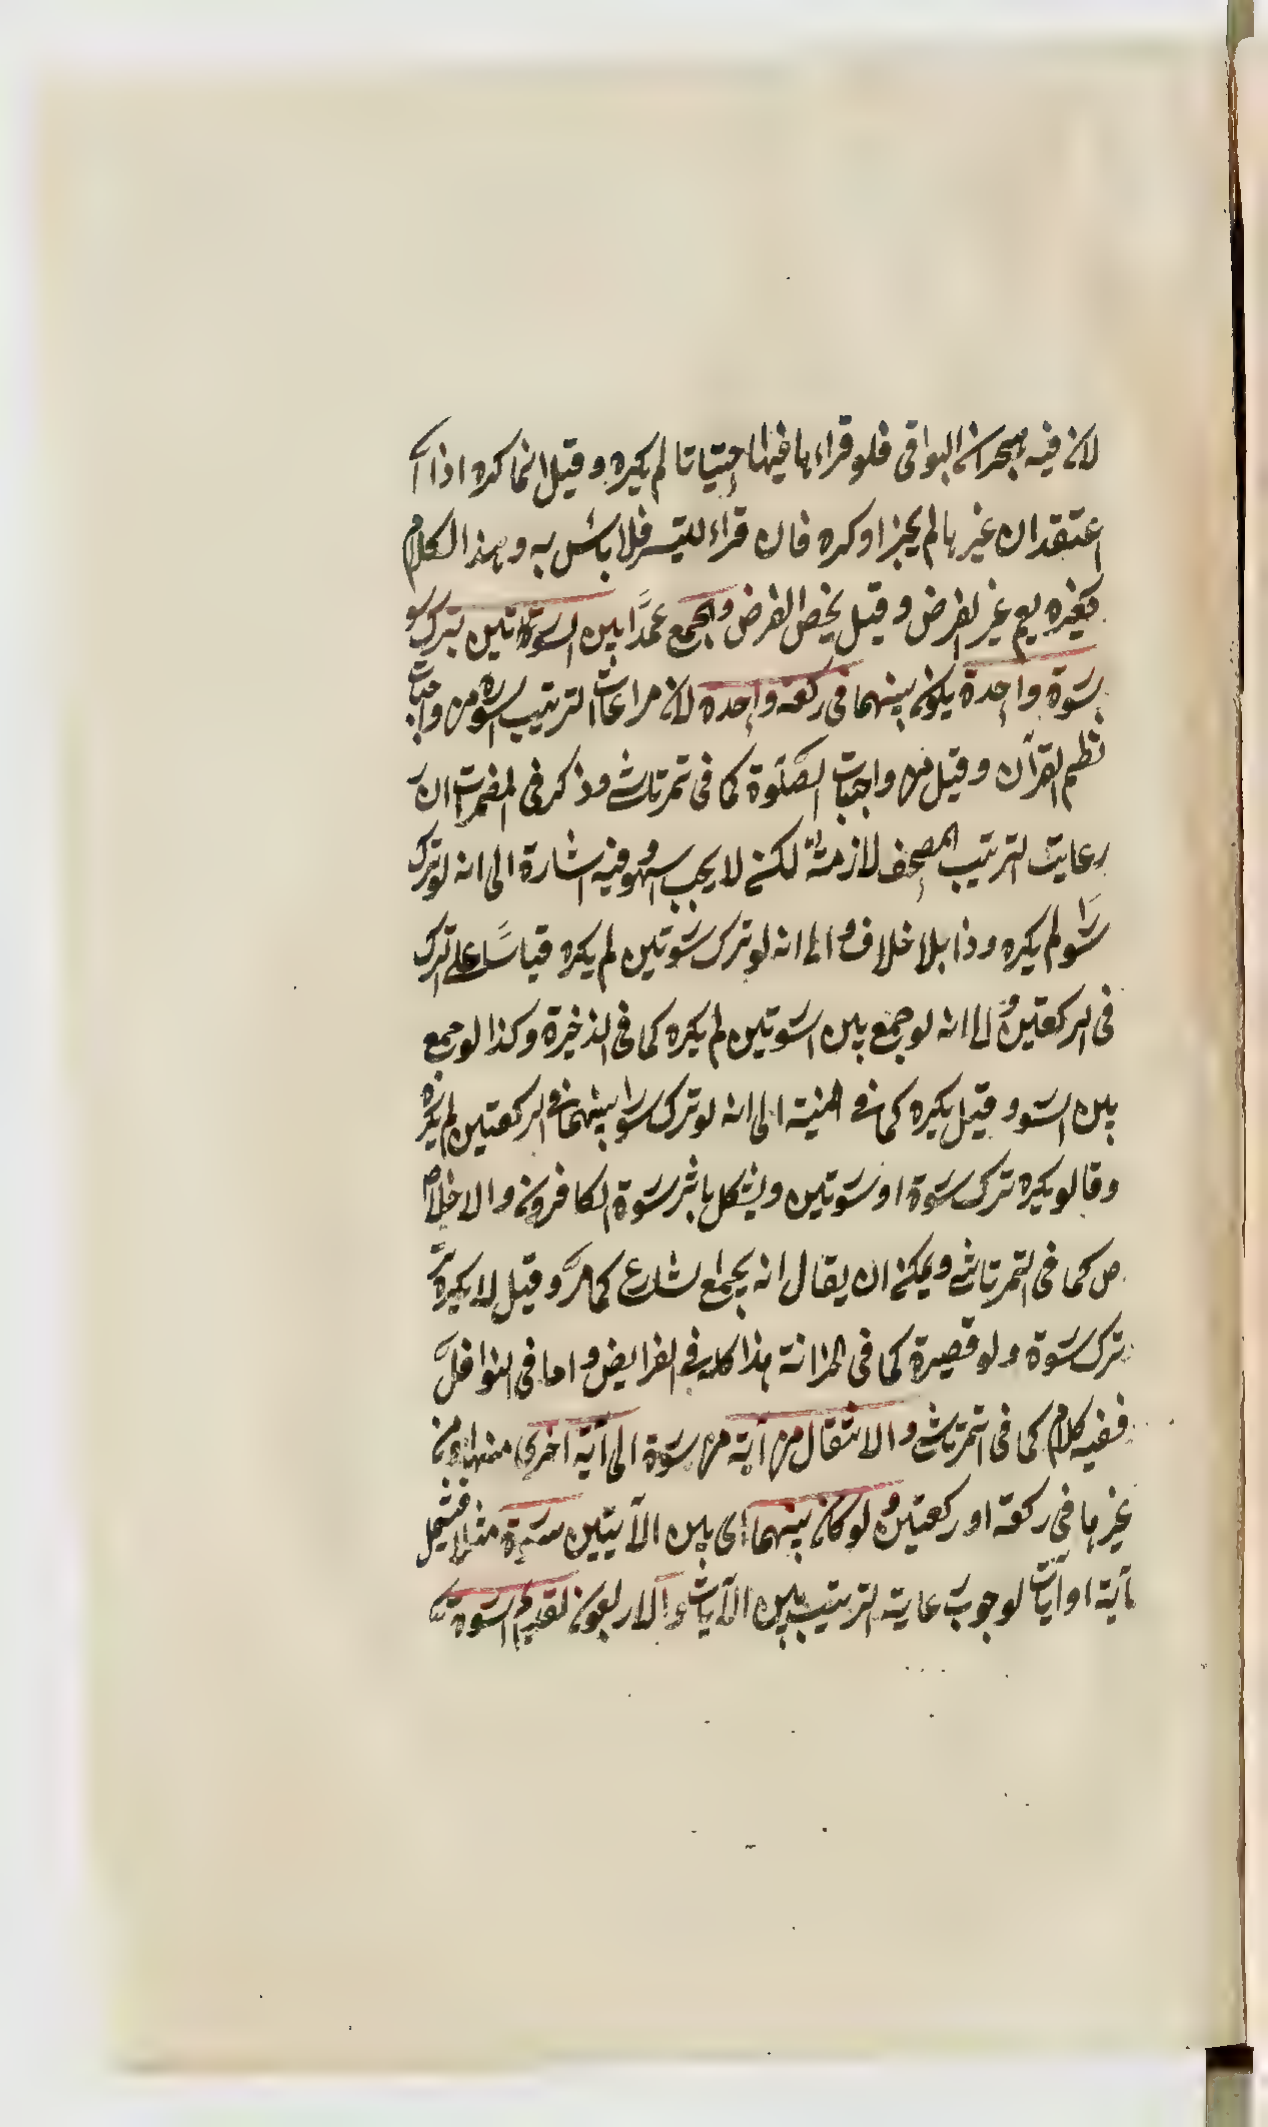 لان فيه هجران البواقى فلو قراء بما فيها احتياتا لم يكره وقيل انما كره اذا ا
اعتقد ان غيرها لم يجز او كره فان قراء لليسر فلا باس به وهذا الكلام
كغيره يعم غير الفرض وقيل يخص الفرض والجمع عمدًا بين السورتين بترك سو
سورة واحدة يكون بينهما فى ركعة واحدة لان مراعات الترتيب السورة من واجبات
نظم القرآن وقيل من واجبات الصلوة كما فى تمرتاشى وذكر فى المضمرات ان
رعايت الترتيب المصحف لازمة لكن لا يجب سهو وفيه اشارة الى انه لو ترك
سورا لم يكره وذا بلا خلاف والى انه لو ترك سورتين لم يكره قياسًا على الترك
فى الركعتين والى انه لو جمع بين السورتين لم يكره كما فى الذخيرة وكذا لو جمع
بين السور وقيل يكره كما فى المنية الى انه لو ترك سورا بينهما فى الركعتين لم يكره
وقالو يكره ترك سورة او سورتين ويشكل باثر سورة الكافرون والاخلا
ص كما فى التمرتاشى ويمكن ان يقال انه بجمع شارع كما مرّ وقيل لا يكره
ترك سورة ولو قصيرة كما فى الخزانة هذا كله فى الفرايض واما فى النوافل
ففيه كلام كما فى التمرتاشى والانتقال من آية من سورة الى آية اخرى منها او من
غيرها فى ركعة او ركعتين ولو كان بينهما اى بين الآيتين سورة مثلا فيشمل
آية او آيات لوجوب رعاية الترتيب بين الآيات والاربعون تقديم السورة